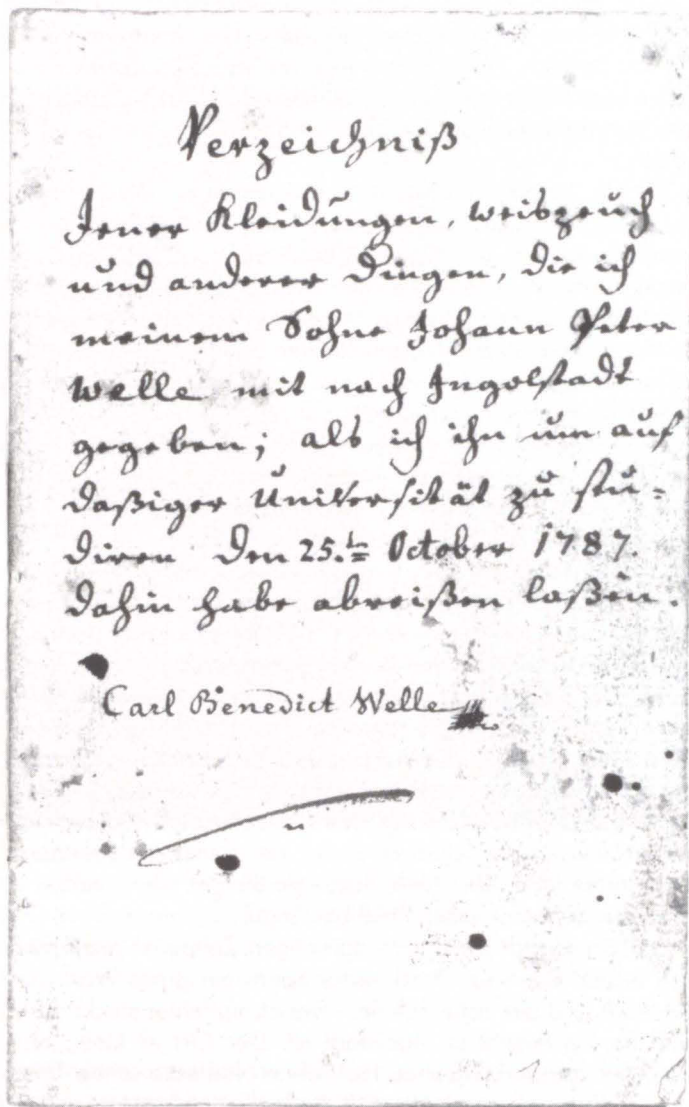 Verzeichniß
Jener Kleidungen, weiszeuch
und anderer Dingen, die ich
meinem Sohne Johann Peter
Welle mit nach Ingolstadt
gegeben; als ich ihn um auf
daßiger Universität zu stu-
diren den 25.ten October 1787.
dahin habe abreißen laßen.
Carl Benedict Welle